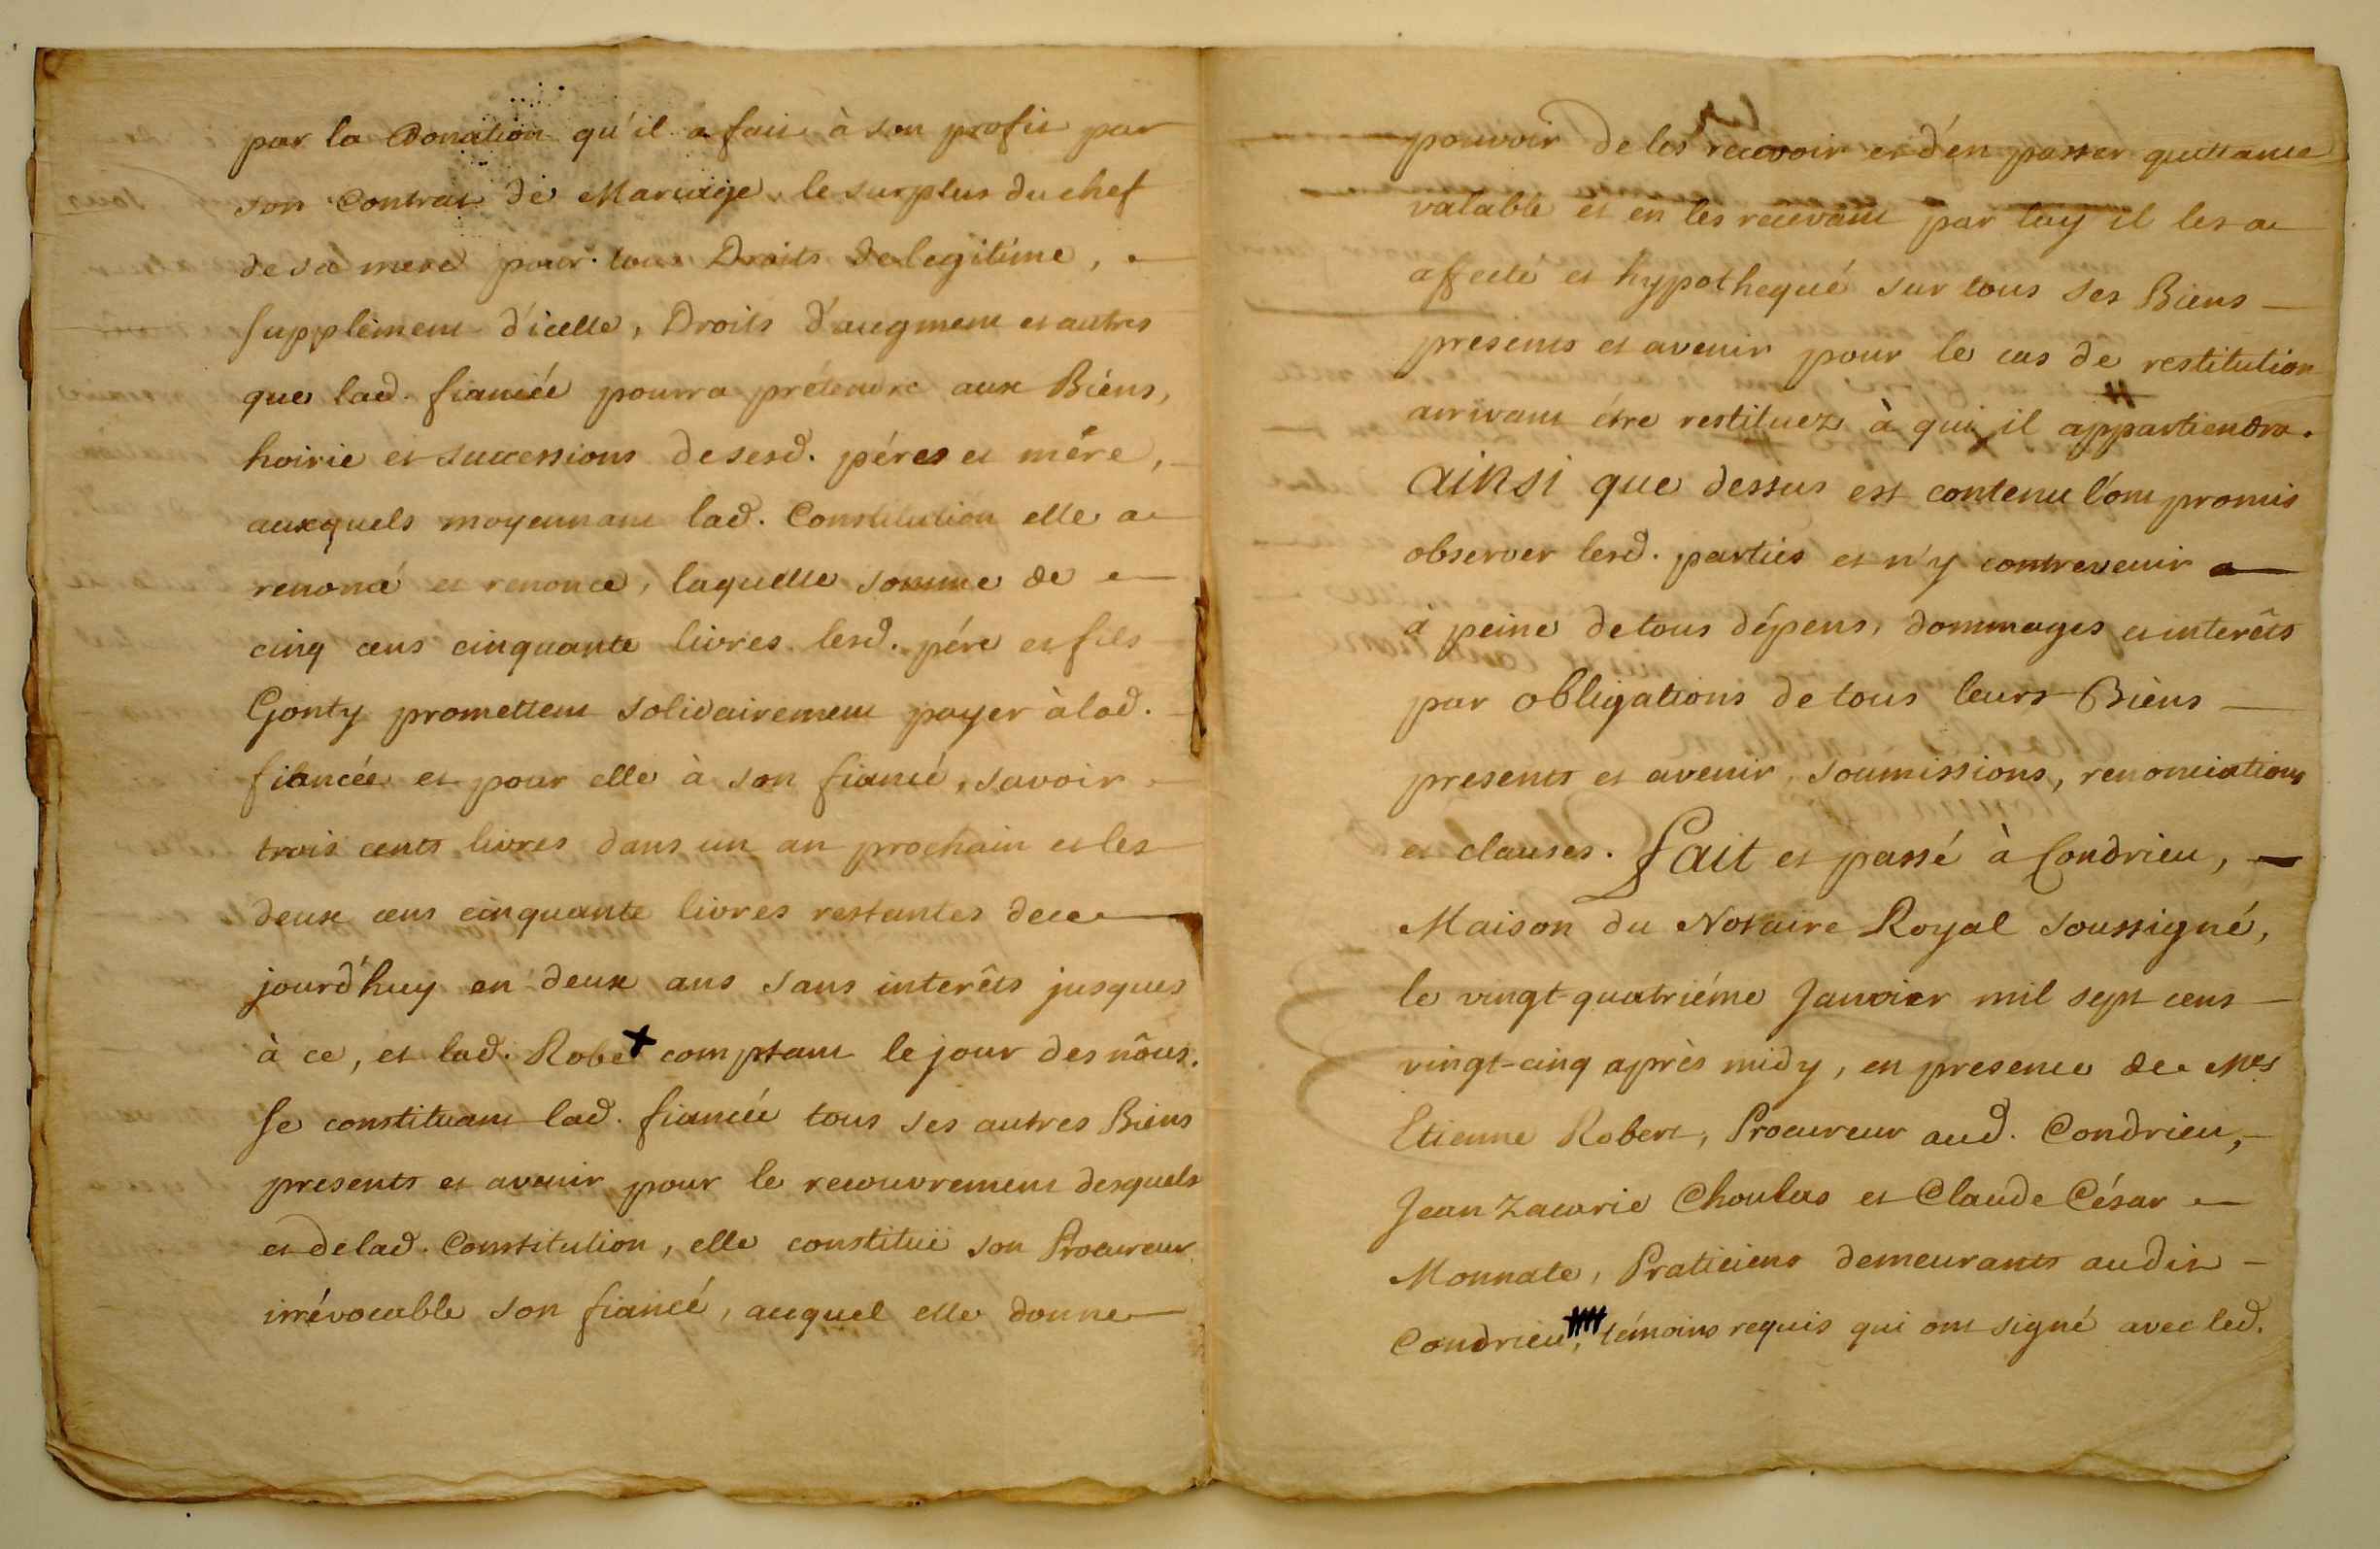 par la Donation qu'il a fait à son profit par
son Contrat de Mariage, le surplus du chef
de sa mere pour tous Droits de legitime,
supplément d'icelle, Droits d'augment et autres
que lad. fiancée pourra prétendre aux Biens,
hoirie et successions de sesd. péres et mére,
auxquels moyennant lad. Constitution elle a
renoncé et renonce, laquelle somme de
cinq cens cinquante livres lesd. pére et fils
Gonty promettent solidairement payer à lad.
fiancée et pour elle à son fiancé, savoir
trois cents livres dans un an prochain et les
deux cens cinquante livres restantes de ce
jourd'huy en deux ans sans interêts jusques
à ce, et lad. Robe comptant le jour des nôces.
Se constituant lad. fiancée tous ses autres Biens
presents et avenir pour le recouvrement desquels
et de lad. Constitution, elle constitüe son Procureur
irrévocable son fiancé, auquel elle donne
pouvoir de les recevoir et d'en passer quittance
valable et en les recevant par luy il les a
affecté et hypothequé sur tous ses Biens
presents et avenir pour le cas de restitution
arrivant étre restituez à qui il appartiendra.
Ainsi que dessus est contenu l'ont promis
observer lesd. parties et n'y contrevenir
à peine de tous dépens, dommages et interêts
par obligations de tous leurs Biens
presents et avenir, soumissions, renonciations
et clauses. Fait et passé à Condrieu,
Maison du Notaire Royal soussigné,
le vingt-quatriéme Janvier mil sept cens
vingt-cinq après midy, en presence de Mes
Etienne Robert, Procureur aud. Condrieu,
Jean Zacarie Choulas et Claude César
Monnate, Praticiens demeurants audit
Condrieu, témoins requis qui ont signé avec led.